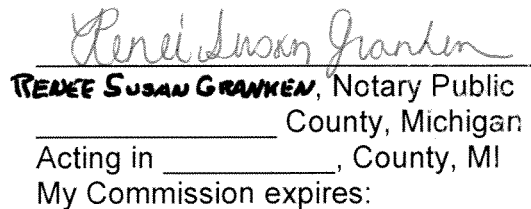 Renee Susan Granken
RENEE SUSAN GRANKEN, Notary Public
____________ County, Michigan
Acting in ___________, County, MI
My Commission expires: